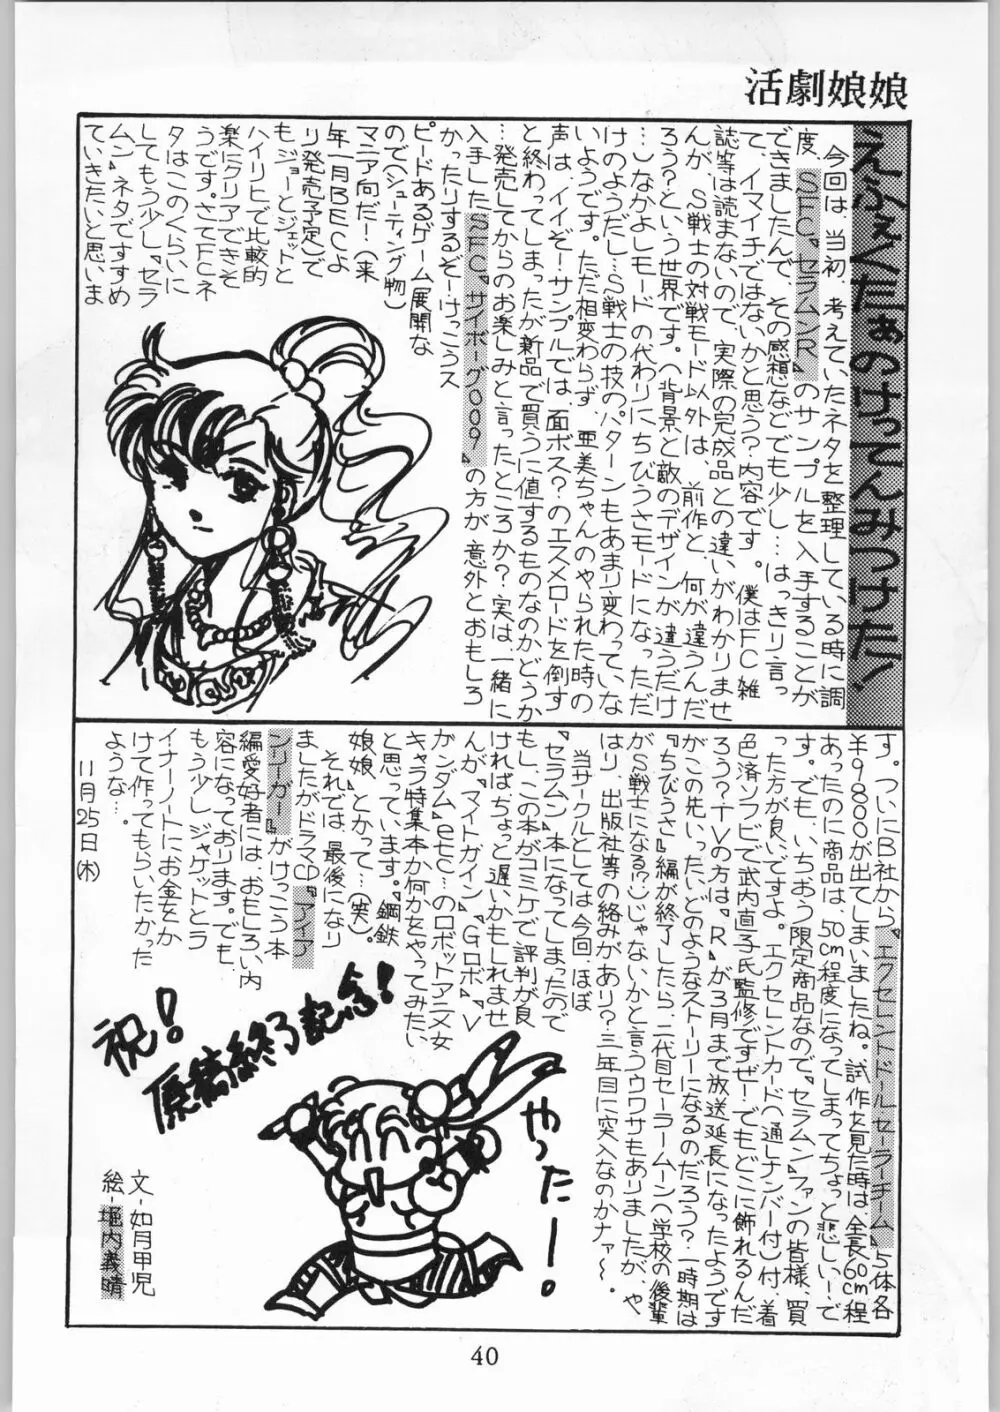 活劇娘娘
えふぇくたぁのけってんみつけた！
今回は当初、考えていたネタを整理している時に調
度、SFC『セラムンR』のサンプルを入手することが
できましたんで、その感想などでも少し…はっきり言っ
て、イマイチではないかと思う？内容です。僕はFC雑
誌等は読まないので、実際の完成品との違いがわかりませ
んが、S戦士の対戦モード以外は、前作と、何が違うんだ
ろう？という世界です。（背景と敵のデザインが違うだけ
…）なかよしモードの代わりにちびうさモードになっただ
けのようだし…S戦士の技のパターンもあまり変わっていな
いようです。ただ相変わらず、亜美ちゃんのやられた時の
声は、イイぞーサンプルでは、面ボス？のエスメロードを倒す
と終わってしまったが新品で買うに値するものなのかどうか
…発売してからのお楽しみと言ったところか？実は、一緒に
入手したSFC『サイボーグ009』の方が、意外とおもしろ
かったりするぞーけっこうス
ピードあるゲーム（展開な
ので（シューティング物）
マニア向だー！（来
年一月BECよ
り発売予定）で
もジョーとジェットと
ハイリヒで比較的
楽にクリアできそ
うです。さてFCネ
タはこのくらいに
してもう少し『セラ
ムン』ネタですすめ
ていきたいと思いま
す。ついにB社から『エクセレントドールセーラーチーム』5体各
￥9800が出てしまいましたね。試作を見た時は、全長60cm程
あったのに商品は、50cm程度になってしまってちょっと悲しいーで
す。でも、いちおう限定商品なので『セラムン』ファンの皆様、買
った方が良いですよ。エクセレントカード（通しナンバー付）付、着
色済ソフビで武内直子氏監修ですぜーでもどこに飾れるんだ
ろう？TVの方は『R』が3月まで放送延長になったようです
がこの先いったいどのようなストーリーになるのだろう？一時期は
『ちびうさ』編が終了したら、二代目セーラームーン（学校の後輩
がS戦士になる!?）じゃないかと言うウワサもありましたが、や
はり、出版社等の絡みがあり？三年目に突入なのかナァ～。
当サークルとしては今回、ほぼ
『セラムン』本になってしまったので
もし、この本がコミケで評判が良
ければ、ぢょっと遅いかもしれませ
んが、『マイトガイン』『Gロボ』『V
ガンダム』etc…のロボットアニメ女
キャラ特集本か何かをやってみたい
と思っています。『鋼鉄
娘娘』とかって…（笑）。
それでは、最後になり
ましたがドラマCD『アイア
ンリーガー』がけっこう本
編愛好者には、おもしろい内
容になっております。でも、
もう少しジャケットとラ
イナーノートにお金をか
けて作ってもらいたかった
ような…。
11月25日（木）
祝！
原稿終了記念！
やったー！
文-如月甲児
絵-堀内義晴
40